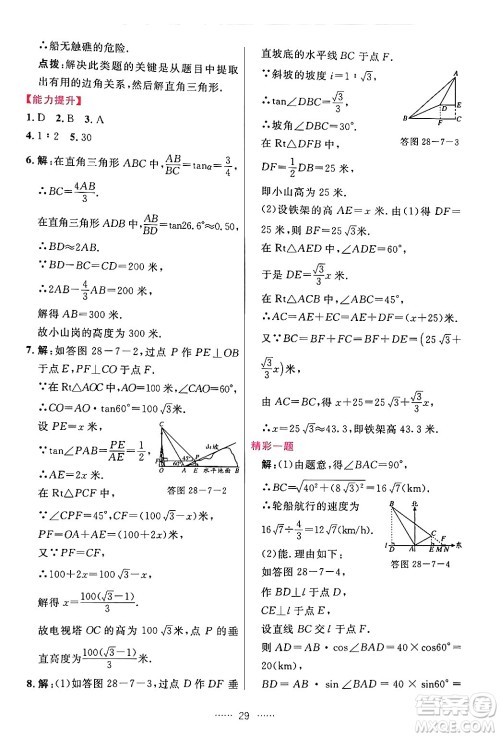 ∴船无触礁的危险.
点拨:解决此类题的关键是从题目中提取
出有用的边角关系,然后解直角三角形.
【能力提升】
1. D  2. B  3. A
4. 1∶2  5. 30
6. 解:在直角三角形 ABC 中,AB/BC=tanα=3/4,
∴BC=4AB/3.
在直角三角形 ADB 中,AB/BD=tan26.6°≈0.50,
∴BD≈2AB.
∵BD-BC=CD=200 米,
∴2AB-4/3AB=200 米.
解得:AB=300 米.
故小山岗的高度为 300 米.
7. 解:如答图 28-7-2,过点 P 作 PE⊥OB
于点 E,PF⊥CO 于点 F.
在 Rt△AOC 中,AO=100,∠CAO=60°,
∴CO=AO·tan60°=100√3(米).
设 PE=x 米,
∵tan∠PAB=PE/AE=1/2,
∴AE=2x 米.
在 Rt△PCF 中,
C
山坡
P
60° 45°
O A E B 水平地面
答图 28-7-2
∵∠CPF=45°,CF=(100√3-x)米,
PF=OA+AE=(100+2x)米,
又∵PF=CF,
∴100+2x=100√3-x.
解得 x=100(√3-1)/3.
故电视塔 OC 的高为 100√3 米,点 P 的垂
直高度为100(√3-1)/3米.
8. 解:(1)如答图 28-7-3,过点 D 作 DF 垂
直坡底的水平线 BC 于点 F.
∵斜坡的坡度 i=1∶√3,
∴tan∠DBF=√3/3.
∴坡角∠DBF=30°.
∴在 Rt△DFB 中,
DF=1/2DB=25(米).
即小山高为 25 米.
A
D E
B F C
答图 28-7-3
(2)设铁架的高 AE=x 米.
在 Rt△DBF 中,已知 DF=25 米,
∴BF=25√3米.
在 Rt△ADE 中,∵∠ADE=60°,
于是 DE=√3/3x 米.
∴AC=AE+CE=AE+DF=(x+25)米.
又∵BC=BF+FC=BF+DE=(25√3+
√3/3x)米.
由 AC=BC,即 x+25=25√3+√3/3x.
∴x=25√3≈43.3,即铁架高 43.3 米.
精彩一题
解:(1)由题意,得∠BAC=90°,
∴BC=√(40²+(8√3)²)=16√7(km).
∴轮船航行的速度为
16√7÷4/3=12√7(km/时).
(2)能.理由如下:
如答图 28-7-4,作
BD⊥l 于点 D,作
CE⊥l 于点 E,
北
B
C
F
l D A E M N 东
答图 28-7-4
设直线 BC 交 l 于点 F,
则 BD=AB·cos∠BAD=40×cos60°=
20(km),
BD=AD·sin∠BAD=40×sin60°=
29